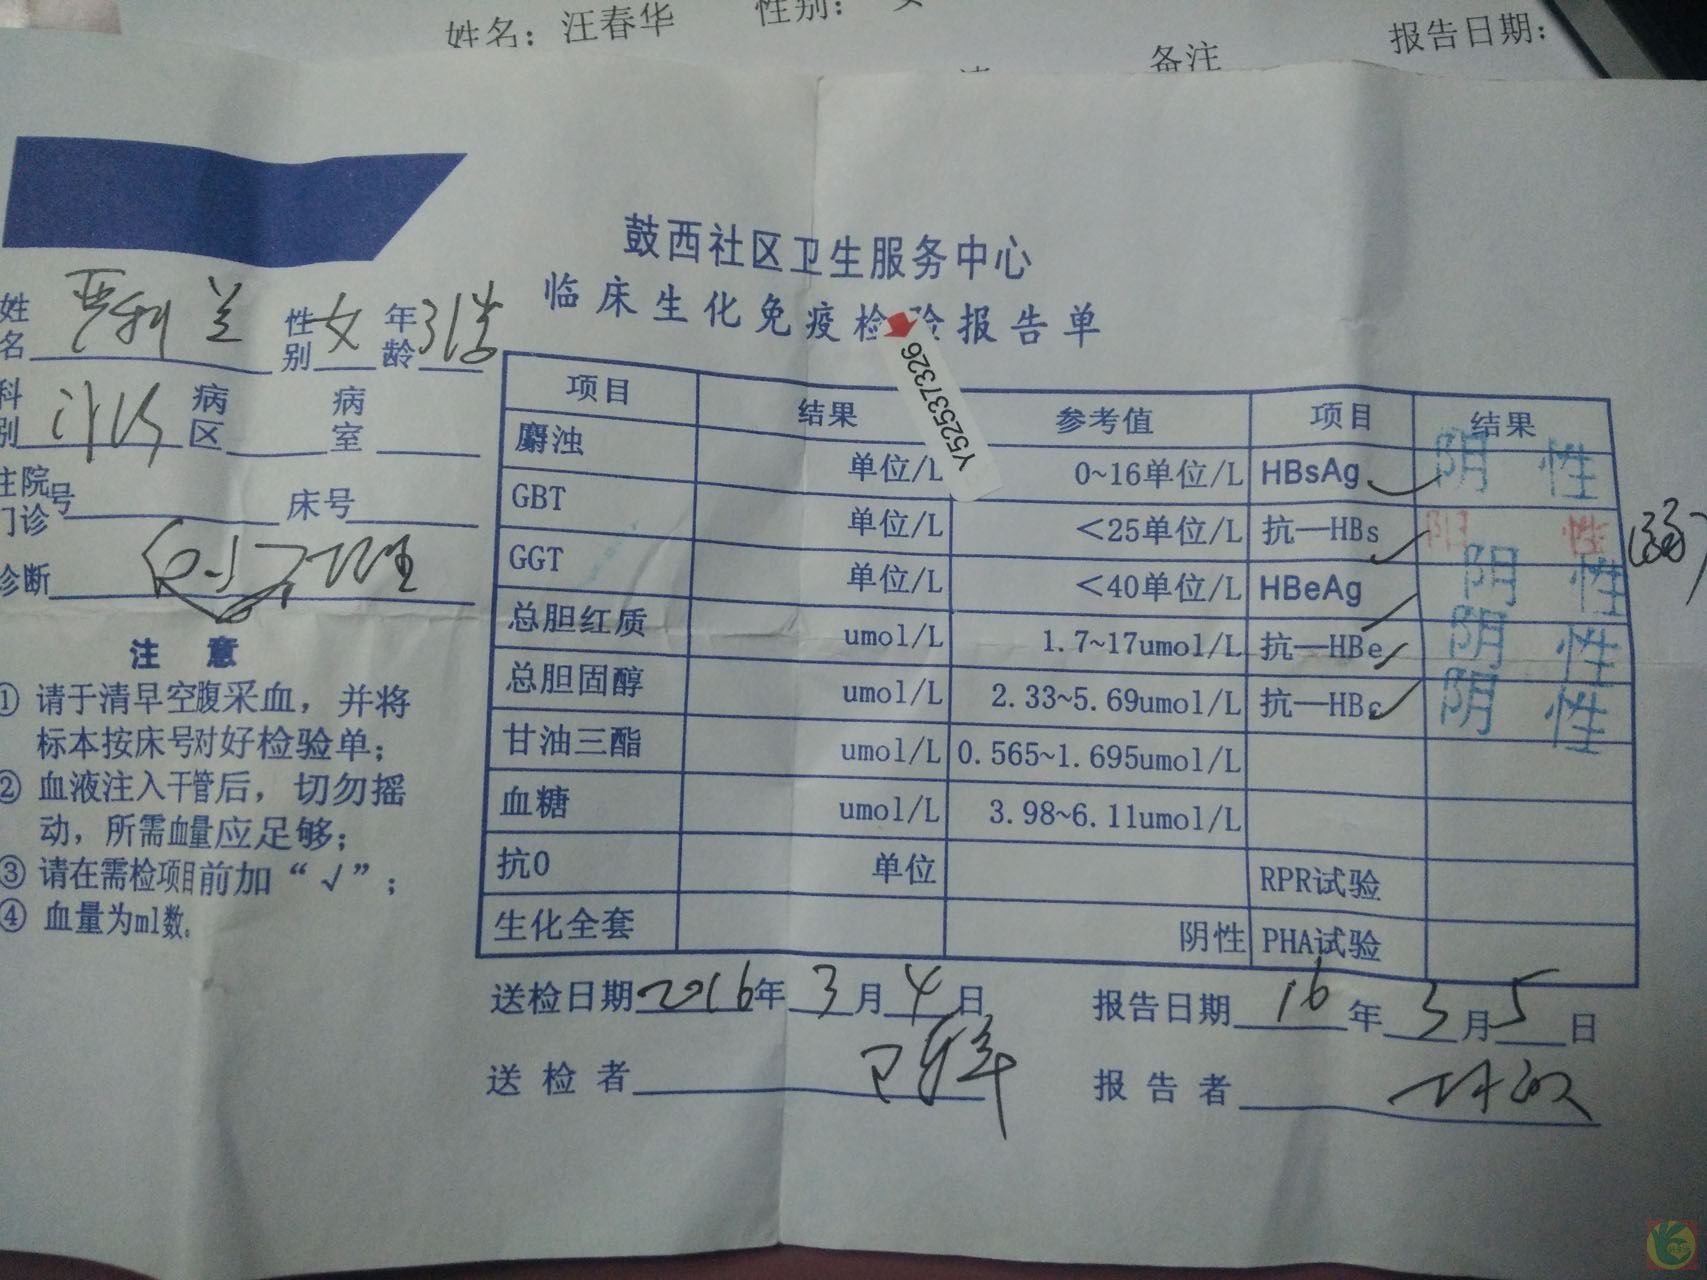 姓名：汪春华 性别： 女 报告日期：
备注
鼓西社区卫生服务中心
临床生化免疫检验报告单
Y52537326
姓名 性别 女 年龄 31岁
科别 病区 病室
住院门诊号 床号
诊断
注 意
① 请于清早空腹采血，并将
标本按床号对好检验单；
② 血液注入干管后，切勿摇
动，所需血量应足够；
③ 请在需检项目前加“√”；
④ 血量为ml数。
项目 结果 参考值 项目 结果
麝浊 单位/L 0~16单位/L HBsAg 阴 性
GBT 单位/L <25单位/L 抗—HBs 阳 性 (弱)
GGT 单位/L <40单位/L HBeAg 阴 性
总胆红质 umol/L 1.7~17umol/L 抗—HBe 阴 性
总胆固醇 umol/L 2.33~5.69umol/L 抗—HBc 阴 性
甘油三酯 umol/L 0.565~1.695umol/L
血糖 umol/L 3.98~6.11umol/L
抗0 单位 RPR试验
生化全套 阴性 PHA试验
送检日期 2016年 3月 4日 报告日期 16年 3月 5日
送检者 报告者